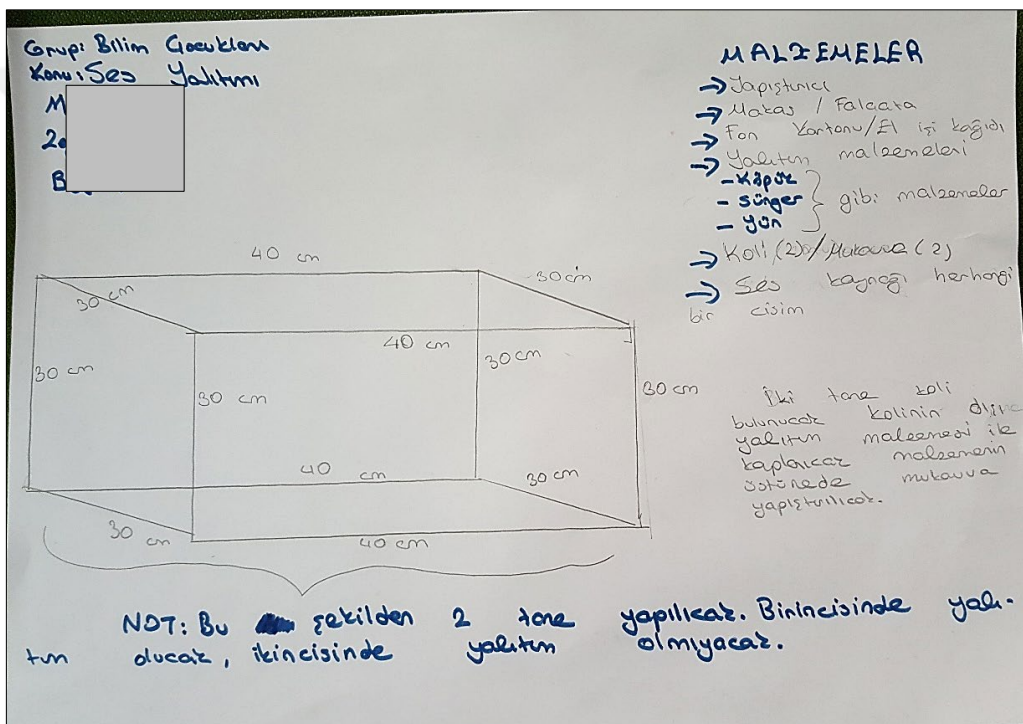 Grup: Bilim Çocukları
Konu: Ses Yalıtımı
M
B
MALZEMELER
→ Yapıştırıcı
→ Makas / Falçata
→ Fon Kartonu/El işi kağıdı
→ Yalıtım malzemeleri
- Köpük
- Sünger } gibi malzemeler
- Yün
→ Koli (2) / Mukavva (2)
→ Ses kaynağı herhangi
bir cisim
40 cm
30 cm
30 cm
40 cm
30 cm
30 cm
30 cm
30 cm
40 cm
30 cm
30 cm
40 cm
İki tane koli
bulunucak kolinin
yalıtım malzemesi ile
kaplanıcak malzemenin
üstünede mukavva
yapıştırılıcak.
NOT: Bu şekilden 2 tane yapılıcak. Birincisinde yalı-
tım olucak, ikincisinde yalıtım olmıyacak.